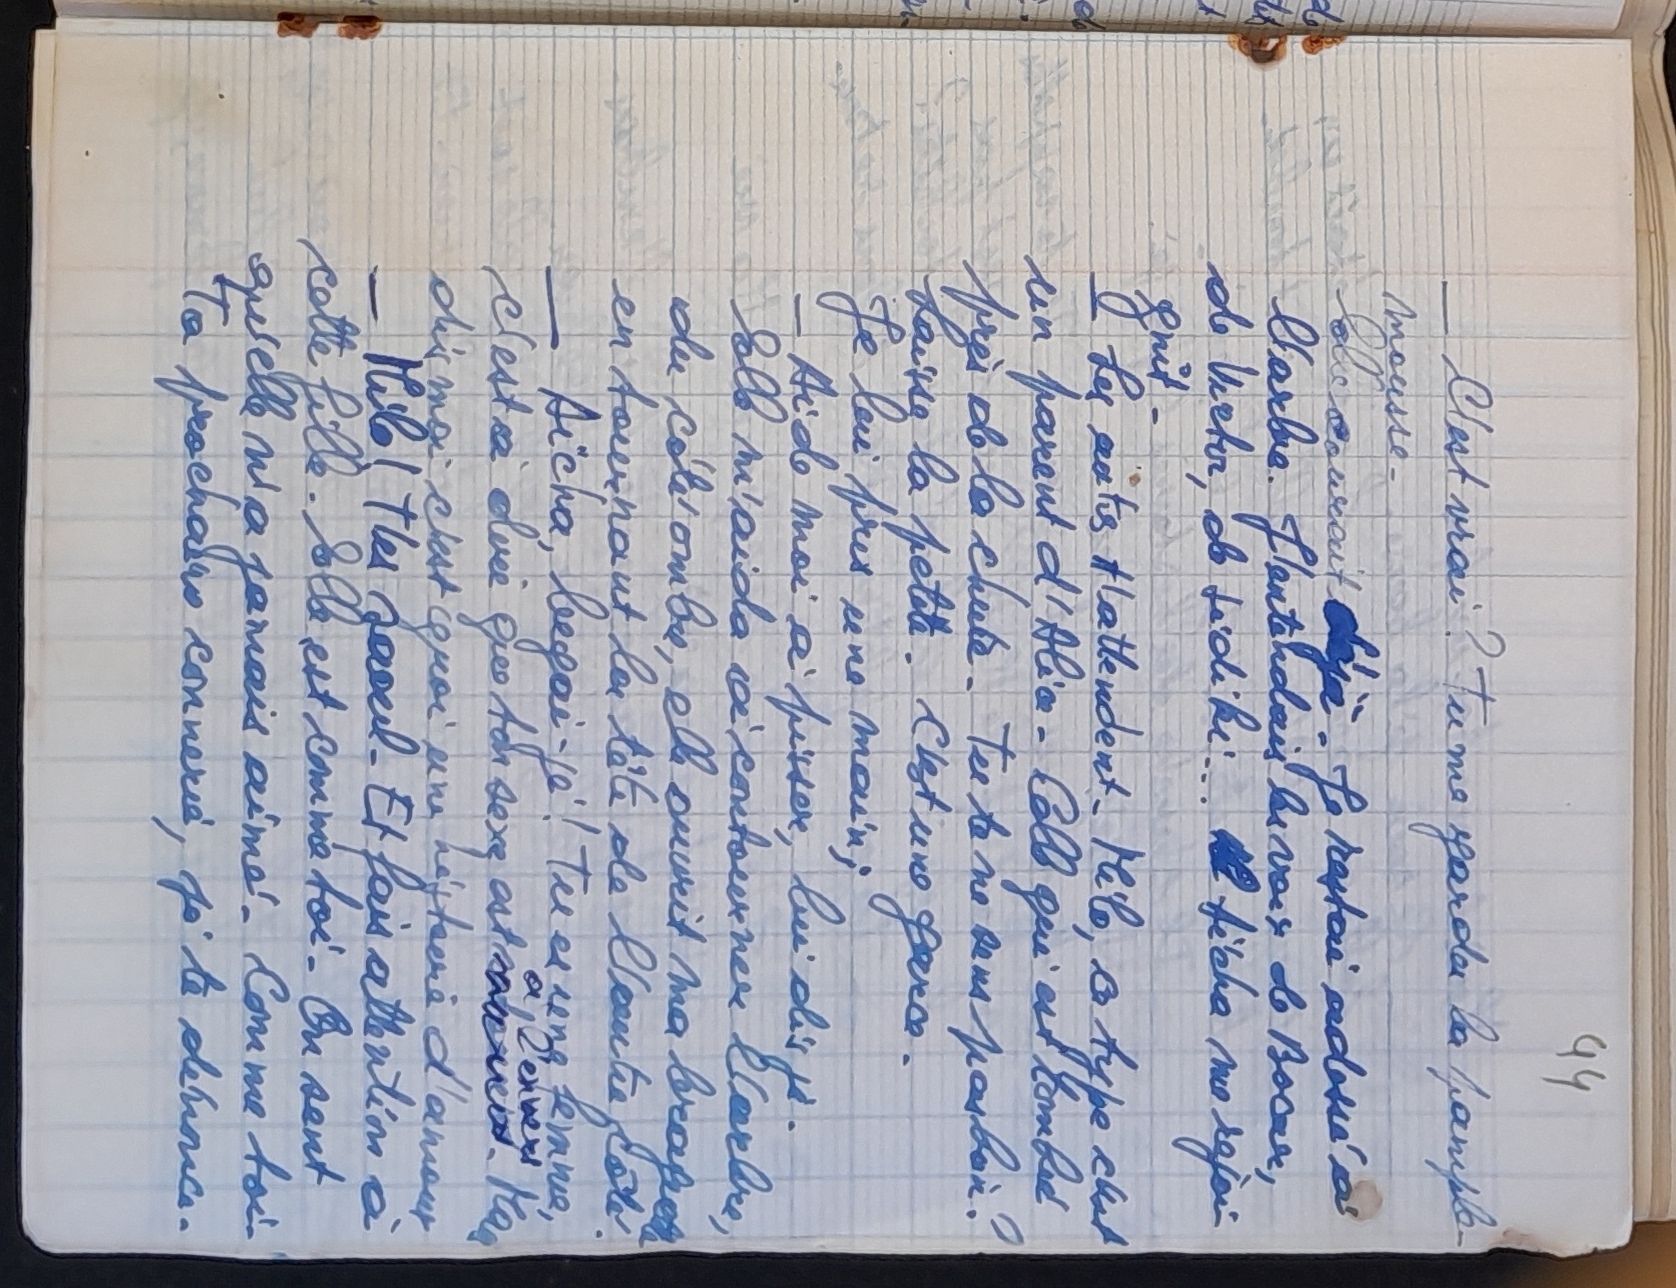 44
— C'est vrai? Tu me gardes la pample-
mousse.
Elle courait déjà. Je restai adossé à
l'arbre. J'entendais les voix de Bocar,
de Vieta, de Sidiki... Aïcha me rejoi-
gnit.
— Les invités t'attendent. Milo, ce type c'est
un parent d'Alia. Celle qui est tombée
près de la chute. Tu te ne sens pas bien?
Laisse la petite. C'est une garce.
Je lui pris une main;
— Aide moi à pisser, lui dis-je.
Elle m'aida à contourner l'arbre,
du côté ombre, elle ouvrit ma braguette
en tournant la tête de l'autre côté.
— Aïcha, begai-je! Tu es une femme,
c'est à dire que ton sexe est à l'envers. Mais
dis moi c'est quoi une histoire d'amour
— Milo! T'es saoul. Et fais attention à
cette fille. Elle est comme toi. On sent
qu'elle n'a jamais aimé. Comme toi.
Ta prochaine connerie, je te dénonce.